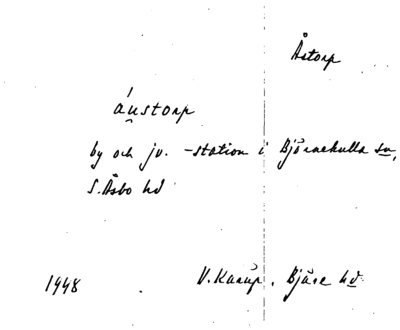 Åstorp
áu̯storp
by och jv. -station i Björnekulla sn,
S. Åsbo hd
1948 V. Karup. Bjäre hd